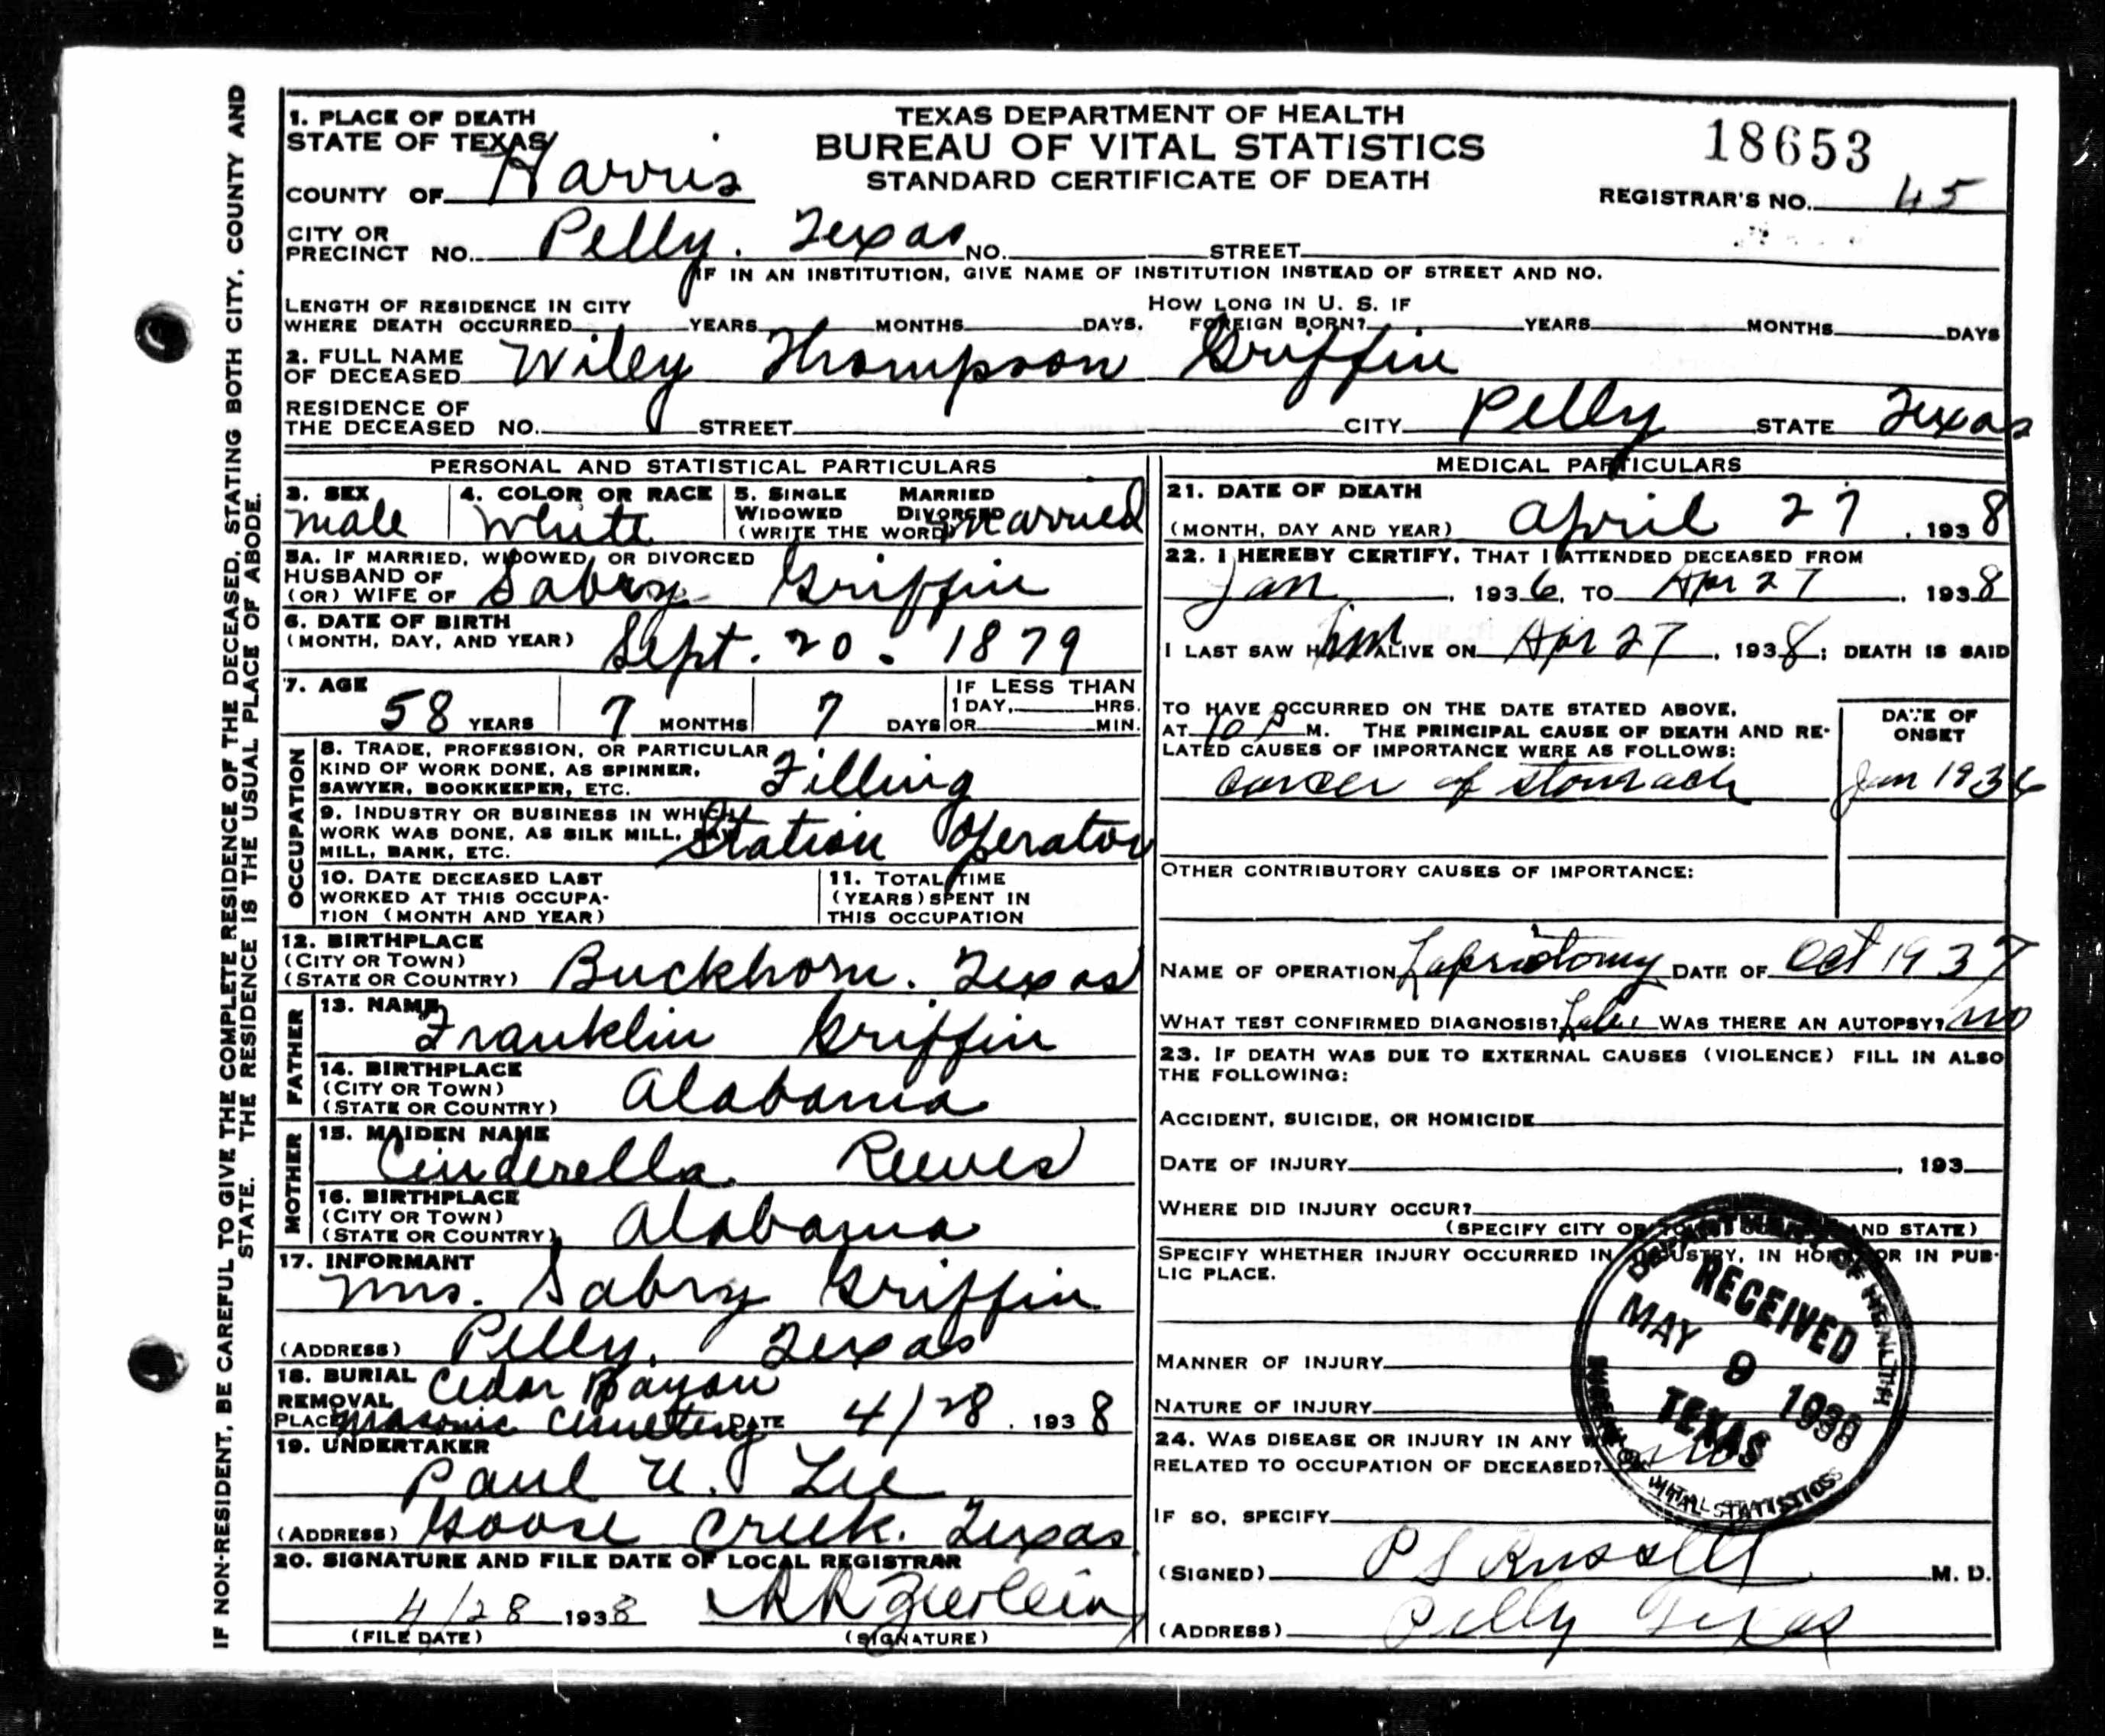 IF NON-RESIDENT, BE CAREFUL TO GIVE THE COMPLETE RESIDENCE OF THE DECEASED, STATING BOTH CITY, COUNTY AND
STATE. THE RESIDENCE IS THE USUAL PLACE OF ABODE.
TEXAS DEPARTMENT OF HEALTH
BUREAU OF VITAL STATISTICS
STANDARD CERTIFICATE OF DEATH
18653
REGISTRAR'S NO. 45
1. PLACE OF DEATH
STATE OF TEXAS
COUNTY OF Harris
CITY OR
PRECINCT NO. Pelly. Texas NO. STREET
IF IN AN INSTITUTION, GIVE NAME OF INSTITUTION INSTEAD OF STREET AND NO.
LENGTH OF RESIDENCE IN CITY HOW LONG IN U. S. IF
WHERE DEATH OCCURRED YEARS MONTHS DAYS. FOREIGN BORN? YEARS MONTHS DAYS
2. FULL NAME
OF DECEASED Wiley Thompson Griffin
RESIDENCE OF
THE DECEASED NO. STREET CITY Pelly STATE Texas
PERSONAL AND STATISTICAL PARTICULARS
3. SEX 4. COLOR OR RACE 5. SINGLE MARRIED
WIDOWED DIVORCED
(WRITE THE WORD)
male White married
5A. IF MARRIED, WIDOWED, OR DIVORCED
HUSBAND OF
(OR) WIFE OF Sabry Griffin
6. DATE OF BIRTH
(MONTH, DAY, AND YEAR) Sept. 20. 1879
7. AGE IF LESS THAN
58 YEARS 7 MONTHS 7 DAYS 1 DAY, HRS.
OR MIN.
OCCUPATION
8. TRADE, PROFESSION, OR PARTICULAR
KIND OF WORK DONE, AS SPINNER,
SAWYER, BOOKKEEPER, ETC. Filling
9. INDUSTRY OR BUSINESS IN WHICH
WORK WAS DONE, AS SILK MILL, SAW
MILL, BANK, ETC. Station Operator
10. DATE DECEASED LAST
WORKED AT THIS OCCUPA-
TION (MONTH AND YEAR)
11. TOTAL TIME
(YEARS) SPENT IN
THIS OCCUPATION
12. BIRTHPLACE
(CITY OR TOWN)
(STATE OR COUNTRY) Buckhorn. Texas
FATHER
13. NAME
Franklin Griffin
14. BIRTHPLACE
(CITY OR TOWN)
(STATE OR COUNTRY) Alabama
MOTHER
15. MAIDEN NAME
Cinderella Reeves
16. BIRTHPLACE
(CITY OR TOWN)
(STATE OR COUNTRY) Alabama
17. INFORMANT
Mrs. Sabry Griffin
(ADDRESS) Pelly, Texas
18. BURIAL Cedar Bayou
REMOVAL
PLACE Masonic Cemetery DATE 4/28, 1938
19. UNDERTAKER
Paul U. Lee
(ADDRESS) Goose Creek. Texas
20. SIGNATURE AND FILE DATE OF LOCAL REGISTRAR
4/28 1938
(FILE DATE) (SIGNATURE)
MEDICAL PARTICULARS
21. DATE OF DEATH
(MONTH, DAY AND YEAR) April 27, 1938
22. I HEREBY CERTIFY, THAT I ATTENDED DECEASED FROM
Jan, 1936, TO Apr 27, 1938
I LAST SAW HIM ALIVE ON Apr 27, 1938; DEATH IS SAID
TO HAVE OCCURRED ON THE DATE STATED ABOVE,
AT 10 P M. THE PRINCIPAL CAUSE OF DEATH AND RE-
LATED CAUSES OF IMPORTANCE WERE AS FOLLOWS:
DATE OF
ONSET
cancer of stomach Jan 1936
OTHER CONTRIBUTORY CAUSES OF IMPORTANCE:
NAME OF OPERATION DATE OF Oct 1937
WHAT TEST CONFIRMED DIAGNOSIS? WAS THERE AN AUTOPSY? no
23. IF DEATH WAS DUE TO EXTERNAL CAUSES (VIOLENCE) FILL IN ALSO
THE FOLLOWING:
ACCIDENT, SUICIDE, OR HOMICIDE
DATE OF INJURY, 193
WHERE DID INJURY OCCUR?
(SPECIFY CITY OR AND STATE)
SPECIFY WHETHER INJURY OCCURRED IN INDUSTRY, IN HOME OR IN PUB-
LIC PLACE.
MANNER OF INJURY
NATURE OF INJURY
24. WAS DISEASE OR INJURY IN ANY
RELATED TO OCCUPATION OF DECEASED? no
IF SO, SPECIFY
(SIGNED) P S Russell M. D.
(ADDRESS) Pelly Texas
DEPARTMENT OF HEALTH
RECEIVED
MAY 9 1938
TEXAS
BUREAU OF VITAL STATISTICS